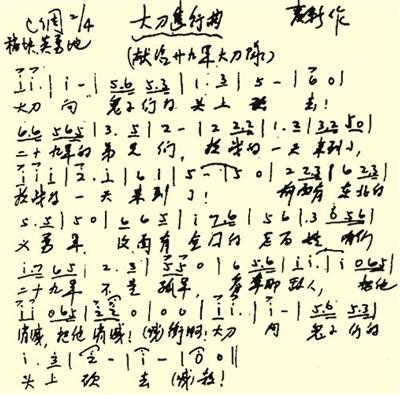 C调 2/4 大刀進行曲 麦新作
稍块 英勇地
(献给廿九军大刀队)
i i. | i - | 5.6 5.3 | 1. 3 | 5 - | 6 0 |
大刀 向 鬼子们的 头上 砍 去!
6.6 5 6 5 | 3. 5 | 2 - | 2 3.3 | 1. 3 | 2.3 5 0 |
二十九军的 弟兄 们, 抗战的 一天 来到了,
i i i | 2. i | 6 1 | 5 - | 5 0 | 2 2.3 | 6 2.3 |
抗战的 一天 来到 了! 前面有 东北的
5. 5 | 5 0 | 6 6 5 | i 7.6 | 5 6 | 3 0 5 6 |
义勇军, 后面有 全国的 老百姓, 咱们
i.7 6 5 | 2. 3 | 5 5 0 | 6 5.6 | i i. | i 0 6 5 |
二十九军 不是 孤军, 看准那 敌人, 把他
i i 0 6 5 | 2 2 0 | 0 0 | i i. | i - | 5.6 5.3 |
消滅, 把他 消滅! (喊)衝啊! 大刀 向 鬼子们的
i. 3 | 2 - | i - | 0 0 ‖
头上 砍 去 (喊)殺!